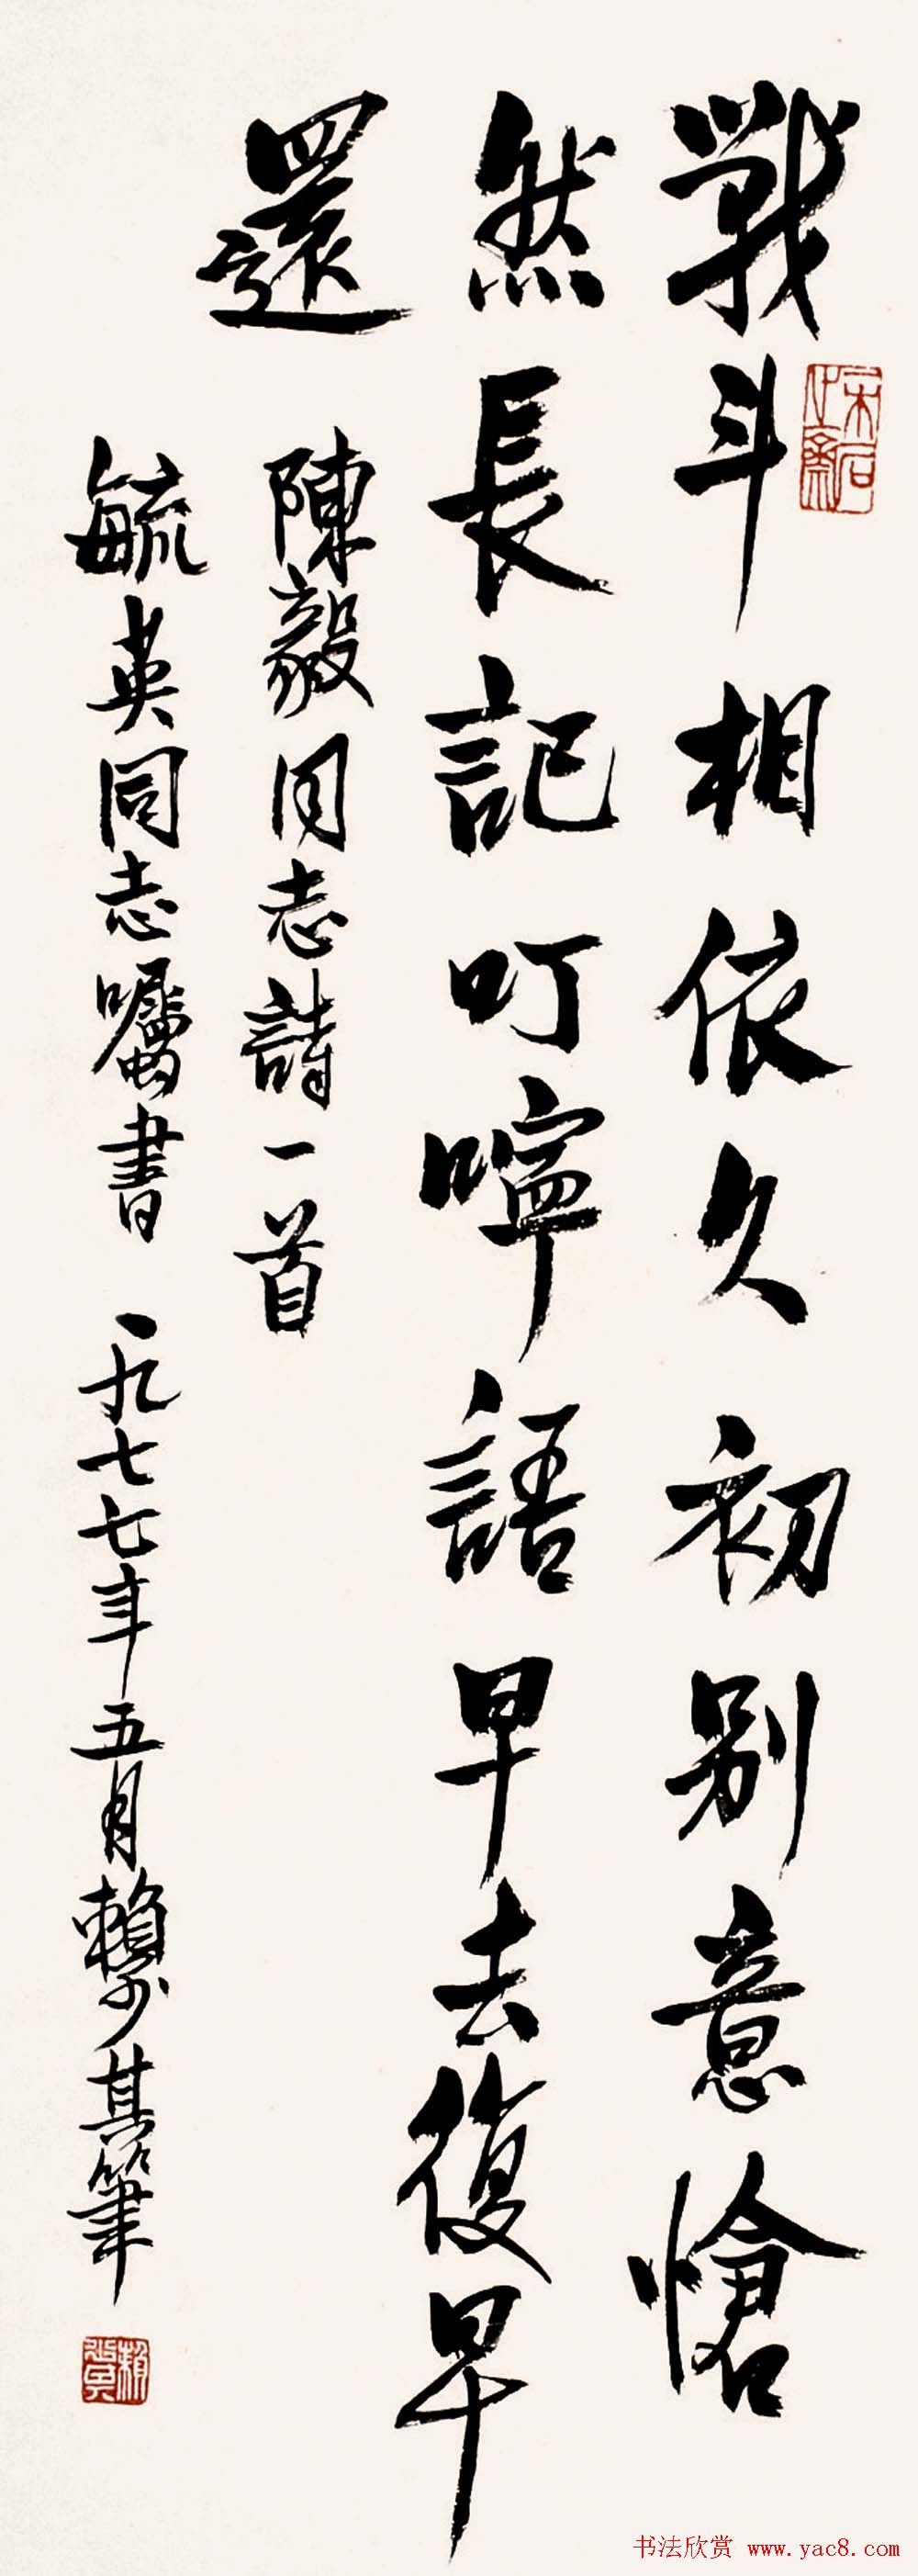 戰斗相依久初别意愴
然長記叮嚀語早去復早
還
陳毅同志詩一首
毓英同志囑書 一九七七年五月賴少其筆
书法欣赏 www.yac8.com